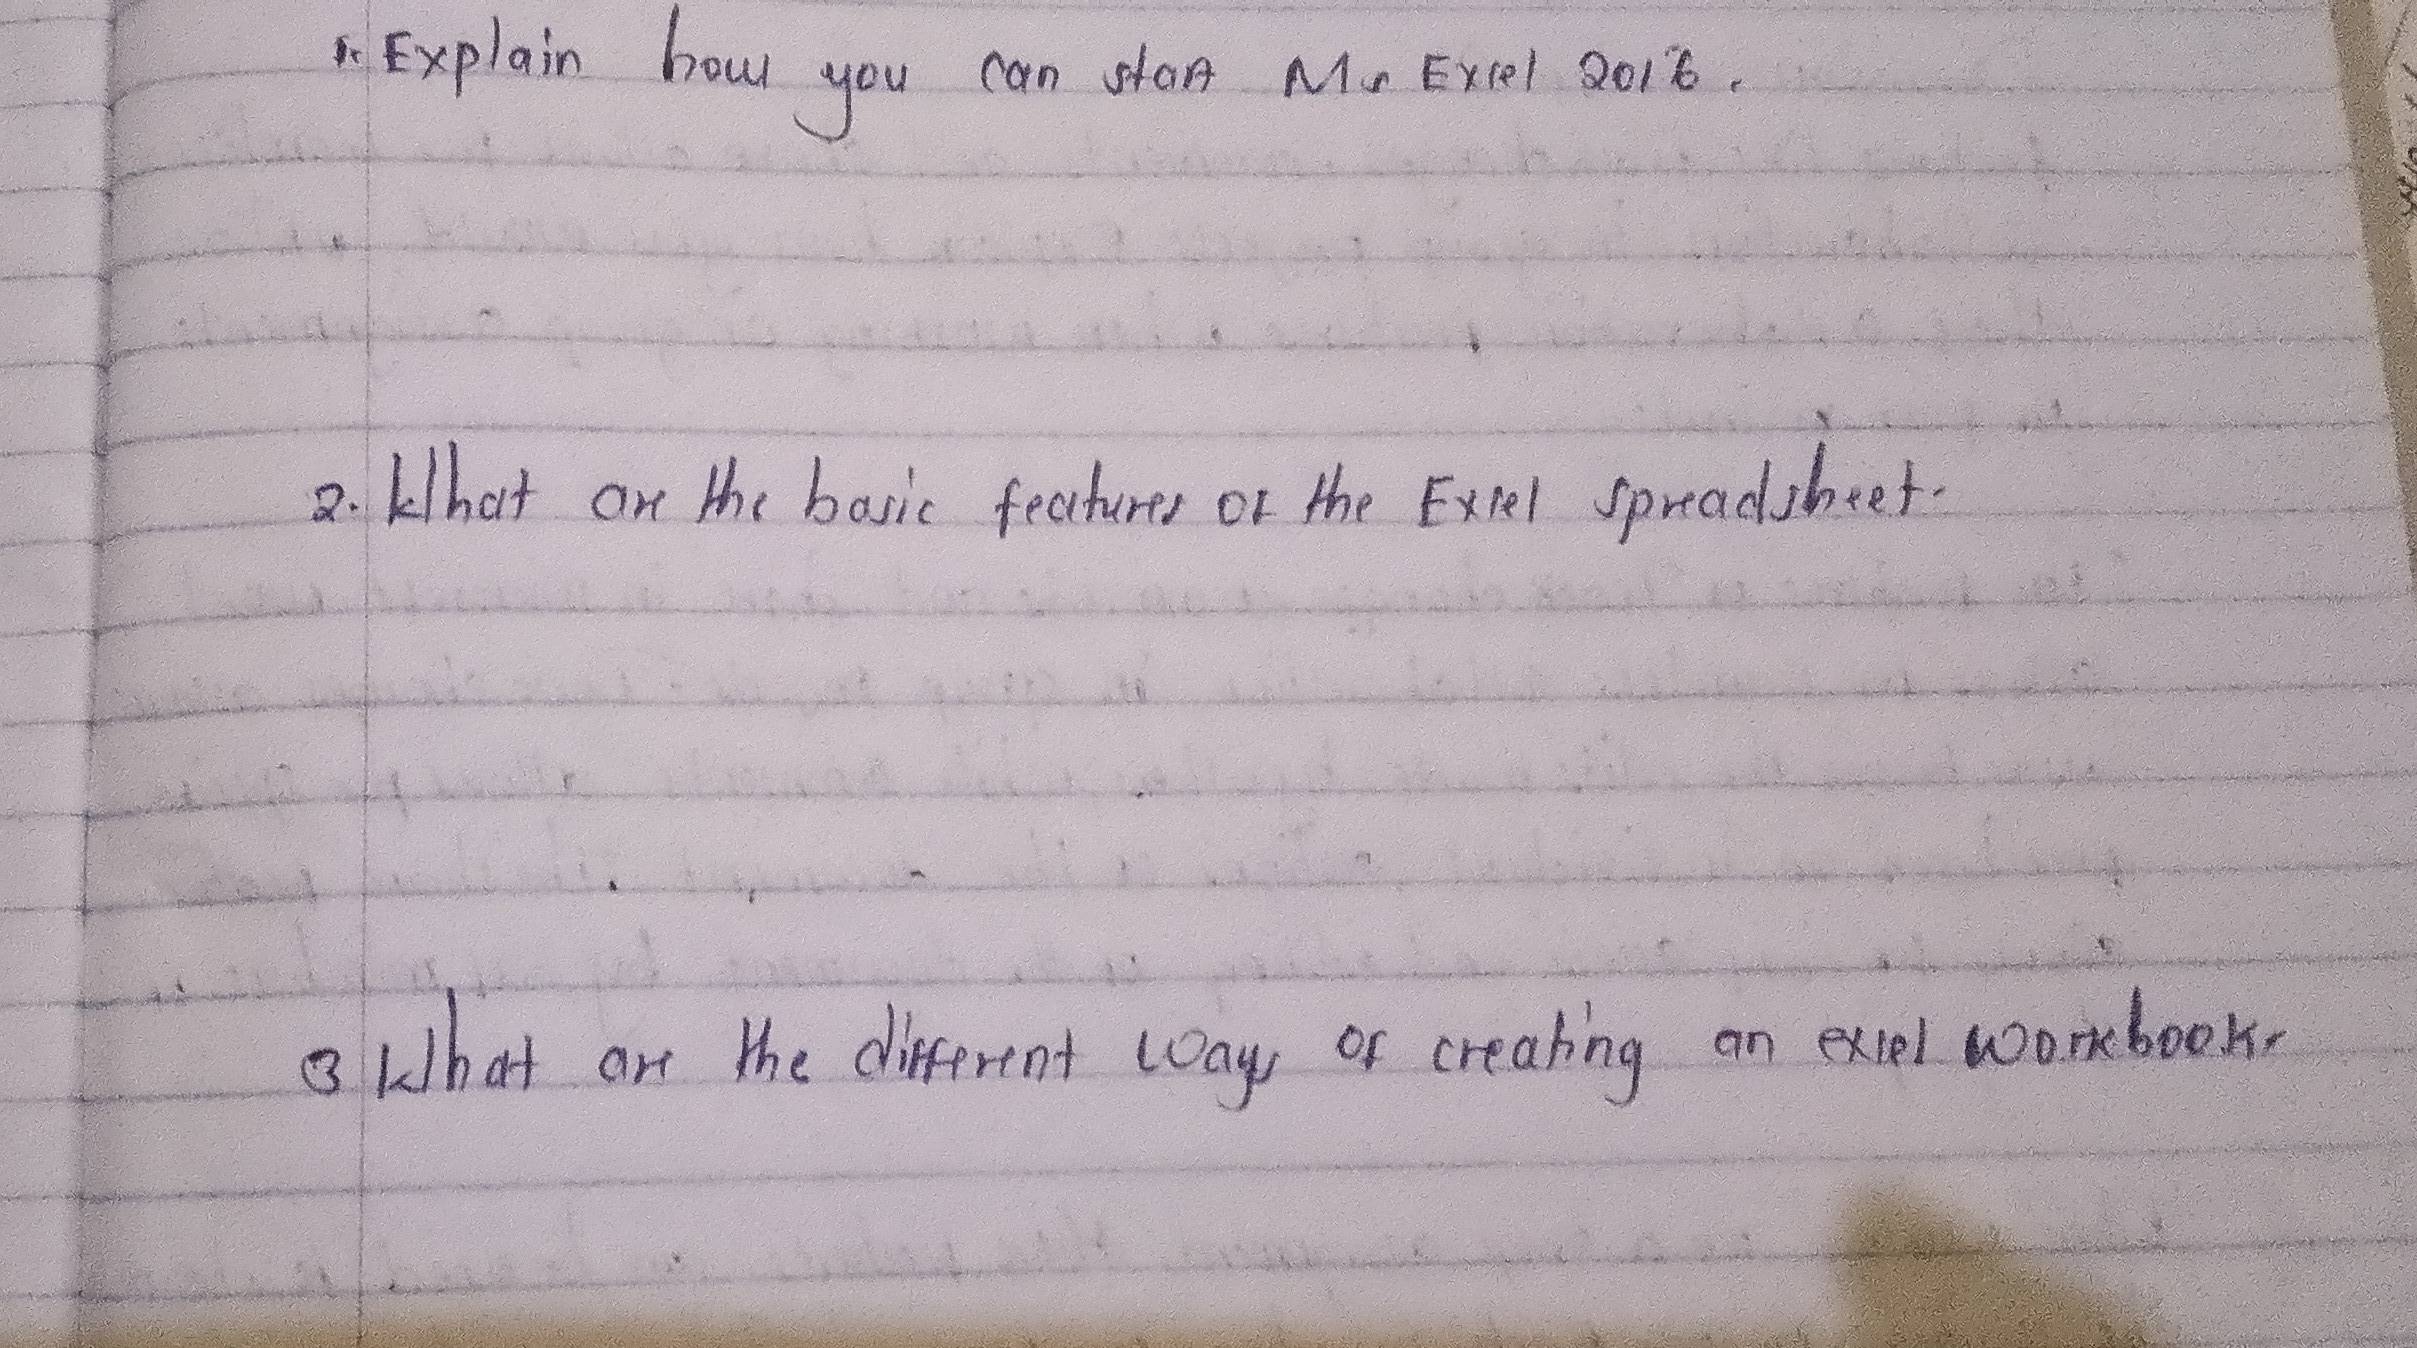 1. Explain how you can start Ms Excel 2016.
2. What are the basic features of the Excel spreadsheet.
3 What are the different ways of creating an excel workbook.